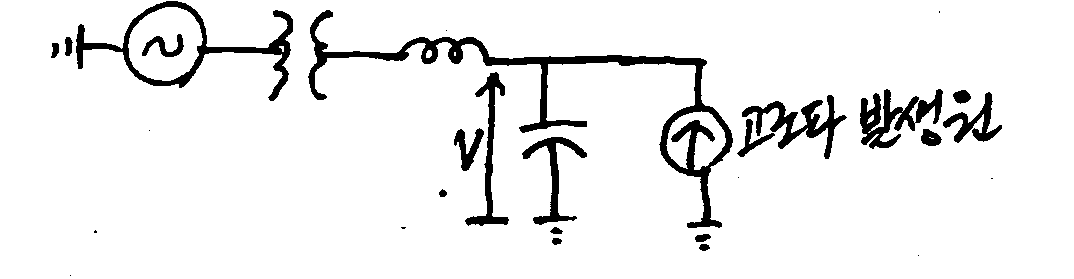 V
고조파 발생원